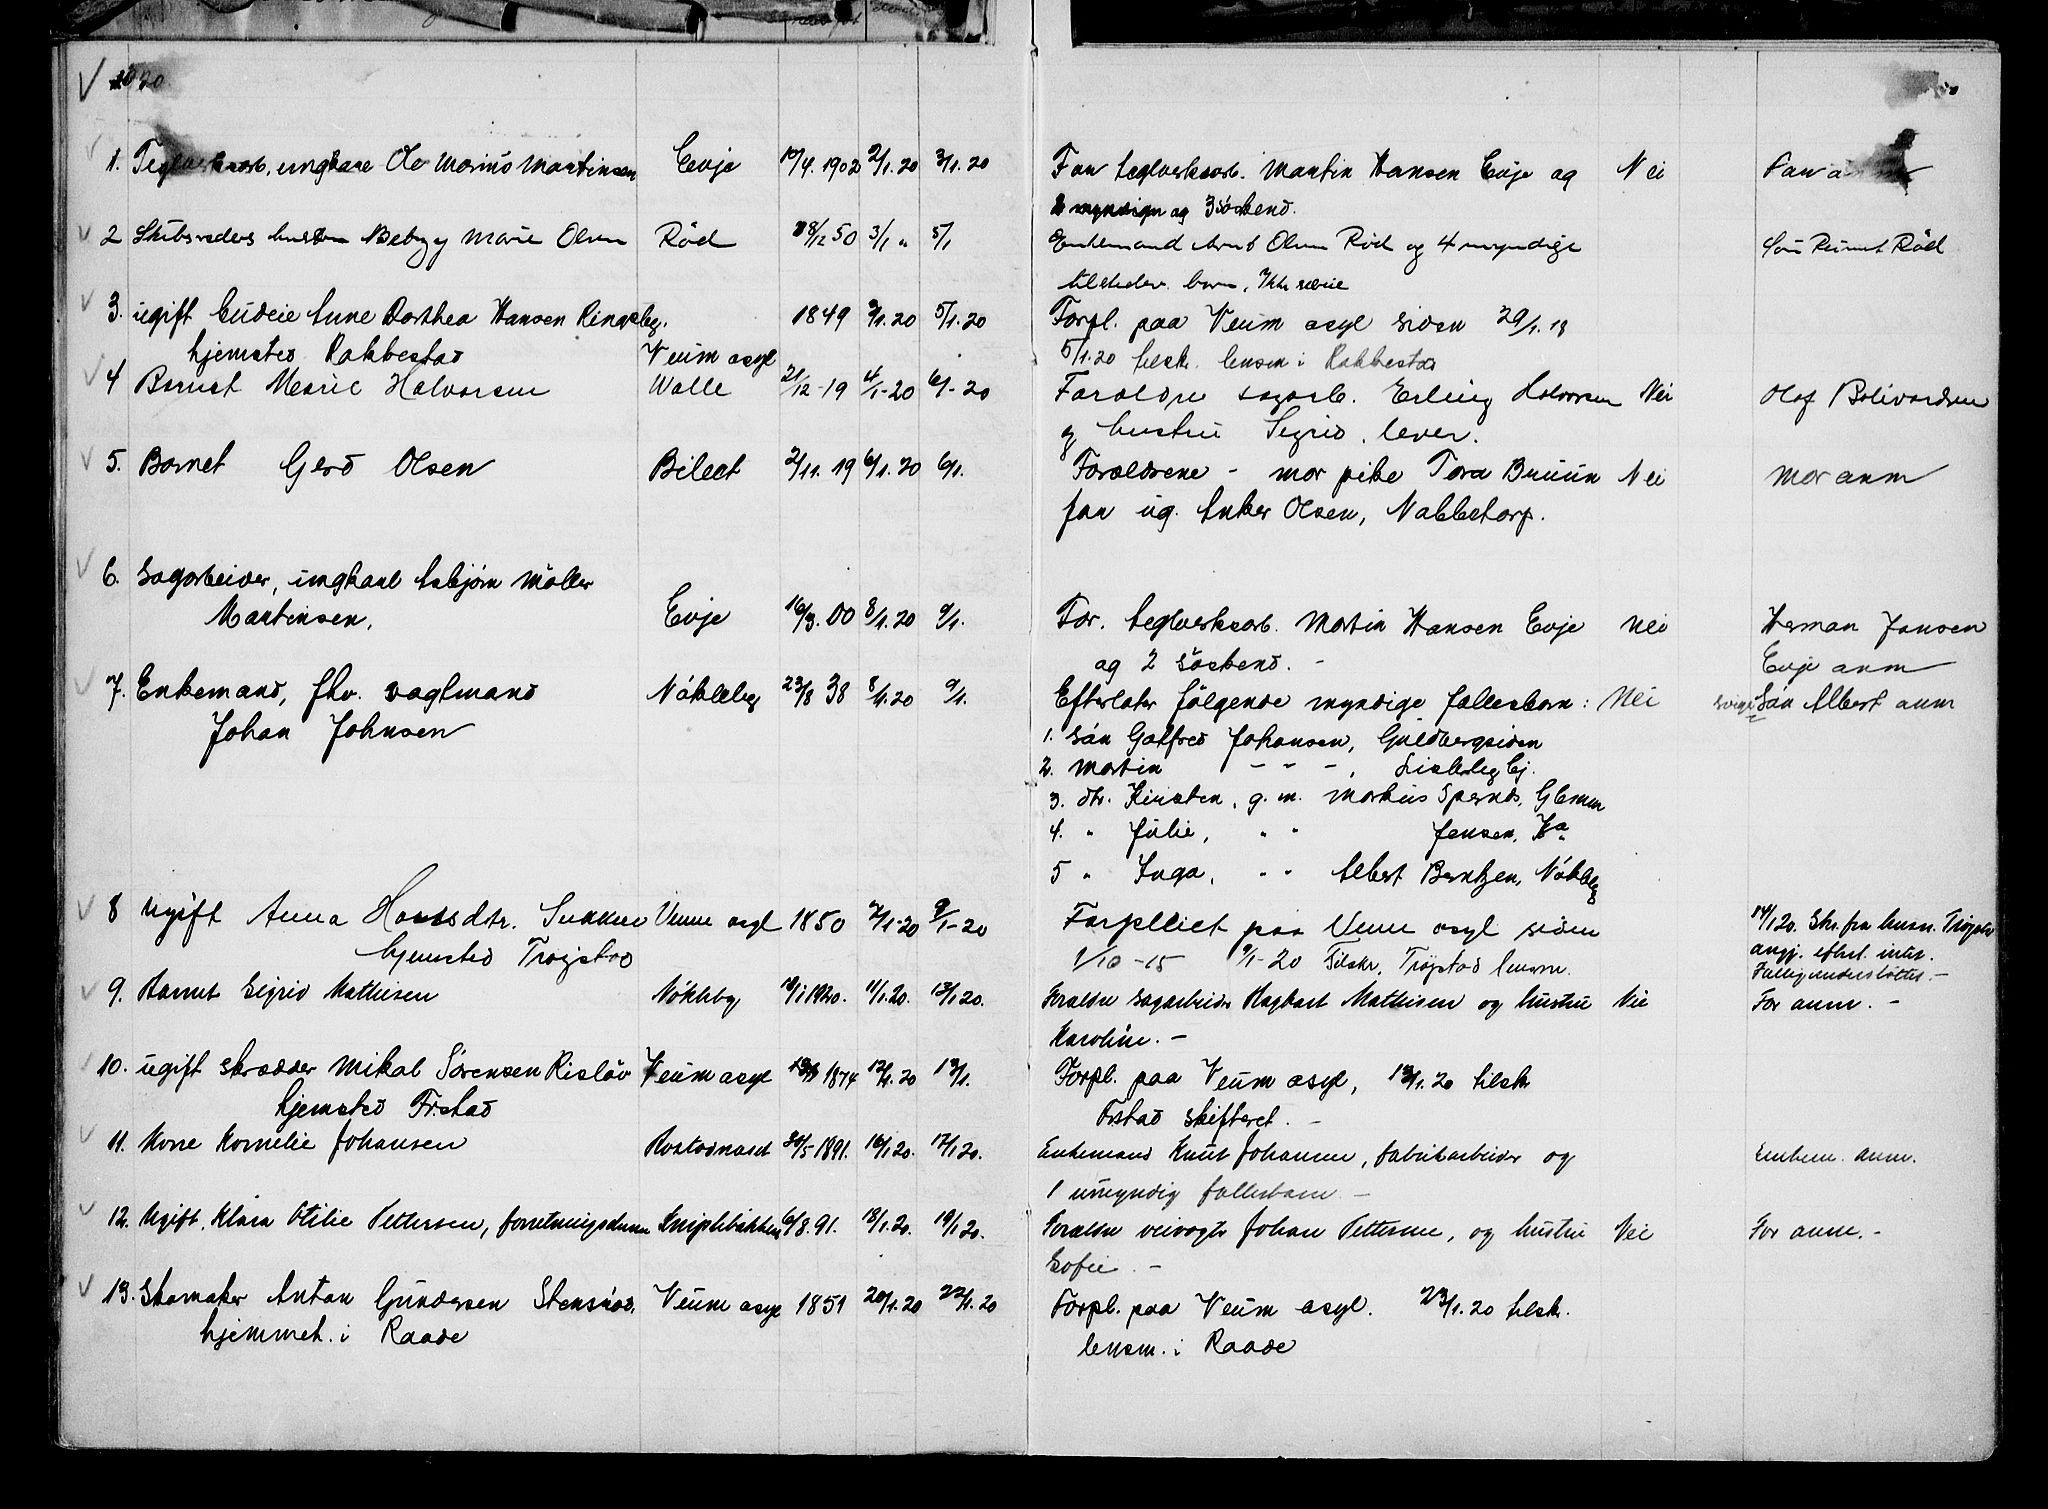 1920
1. Teglverksarb, ungkare Ole Marius Martinsen Evje 10/4. 1902 2/1. 20 3/1. 20 Far teglverksarb. Martin Hansen Evje og Nei Far
myndige og 3 söskend.
2 Skibsreders hustru Marie Olsen Röd 18/12 50 3/1 " 5/1 Enkemand Olsen Röd og 4 myndige Sön Röd
tilstede barn,
3. ugift Gudvie Anne Dorthea Hansen Ringsbg. 1849 3/1. 20 5/1. 20 Forpl. paa Veum asyl siden 29/1. 18
hjemsted Rakkestad Veum asyl 5/1.20 tilskr. lensm i Rakkestad
4 Barnet Marie Halvorsen Walle 21/12 - 19 4/1-20 6/1-20 Foreldre sagarb. Erling Halvorsen Nei Olaf Bolivardsen
og hustru Sigrid, lever.
5. Barnet Gerd Olsen Bilect 2/11. 19 6/1. 20 6/1. Foreldrene - mor pike Tora Bruun Nei Mor anm
far ug. Anker Olsen, Nabbetorp.
6. Sagarbeider, ungkarl Asbjörn Möller
Martinsen, Evje 16/3. 00 8/1. 20 9/1. Far. teglverksarb. Martin Hansen Evje Nei Herman Jansen
og 2 söskend. - Evje anm
7. Enkemand, fhv. vagtmand Nökleby 23/8 38 8/1.20 9/1. Efterlater fölgende myndige fellesbarn: Nei sviger Sön Albert anm
Johan Johnsen
1. sön Gotfred Johansen, Guldbergsiden
2. Martin - " - , Lisleby Ej.
3. dtr. Kirsten, g. m. Markus Spernes, Glemm
4. " Julie, " " Jensen, Kra
5 " Inga, " " Albert Berntzen, Nökleby
8 Ugift Anna Hansdtr. Veum asyl 1850 7/1-20 9/1-20 Forpleiet paa Veum asyl siden 14/1 20. Skr. fra lensm. Trögstad
hjemsted Trögstad 1/10 - 15 9/1-20 Tilskr. Trögstad lensm. angj. efterl. intet.
Fattigunderstöttet. -
9. Barnet Sigrid Mathisen Nökleby 10/1 1920. 11/1.20. 13/1 20. Foreldre sagarbeider Hagbart Mathisen og hustru Nei Far anm. -
Karoline. -
10. ugift skredder Mikal Sörensen Rislöv Veum asyl 1874 12/1. 20 13/1. Forpl. paa Veum asyl, 13/1. 20 tilskr
hjemsted Fr.stad Frstad skifteret. -
11. Kone Kornelie Johansen Rostadneset 30/5 1891. 16/1 20. 17/1 20. Enkemand Knut Johansen, fabrikarbeider og Enkem. anm.
1 umyndig fellesbarn -
12. Ugift, Klara Otilie Pettersen, forretningsdame Kniplebakken 6/8. 91. 18/1. 20. 19/1 20. Foreldre veivogter Johan Pettersen, og hustru Nei Far anm. -
Sofie. -
13. Skomaker Anton Gundersen Stensrud, Veum asyl 1851 20/1. 20 22/1. 20 Forpl. paa Veum asyl. 23/1. 20 tilskr.
hjemmeh. i Raade lensm. i Raade